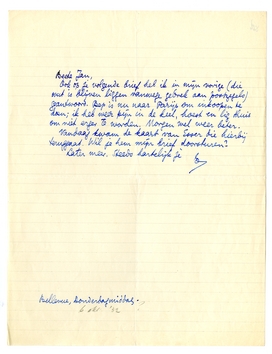 Beste Jan,
Ook op je volgende brief heb ik in mijn vorige (die
was blijven liggen vanwege gebrek aan postzegels)
geantwoord. Pep is nu naar Parijs om inkoopen te
doen; ik heb weer pijn in de keel, hoest en lig thuis
om niet erger te worden. Morgen wel weer beter.
Vandaag kwam de kaart van Sover die hierbij
teruggaat. Wil je hem mijn brief doorsturen?
Later meer. Steeds hartelijk je
Bellevue, Donderdagmiddag.
6 okt. '32